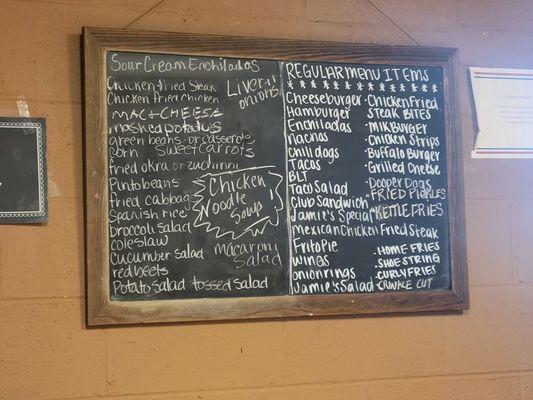 Sour Cream Enchiladas
Chicken Fried Steak
Chicken Fried Chicken
Liver +
onions
MAC + CHEESE
mashed potatoes
green beans or casserole
corn sweet carrots
fried okra or zucchini
Pinto beans
fried cabbage
Spanish rice
broccoli salad
coleslaw
Cucumber salad
red beets
Potato Salad tossed salad
Chicken
Noodle
Soup!
macaroni
Salad
REGULAR MENU ITEMS
Cheeseburger
Hamburger
Enchiladas
nachos
chili dogs
Tacos
BLT
Taco Salad
Club Sandwich
Jamie's Special
Mexican Chicken Fried Steak
Frito Pie
wings
onion rings
Jamie's Salad
• Chicken Fried
STEAK BITES
• MIK BURGER
• Chicken Strips
• Buffalo Burger
• Grilled Cheese
• Dooper Dogs
• FRIED PICKLES
• KETTLE FRIES
• HOME FRIES
• SHOE STRING
• CURLY FRIES
• CRINKLE CUT